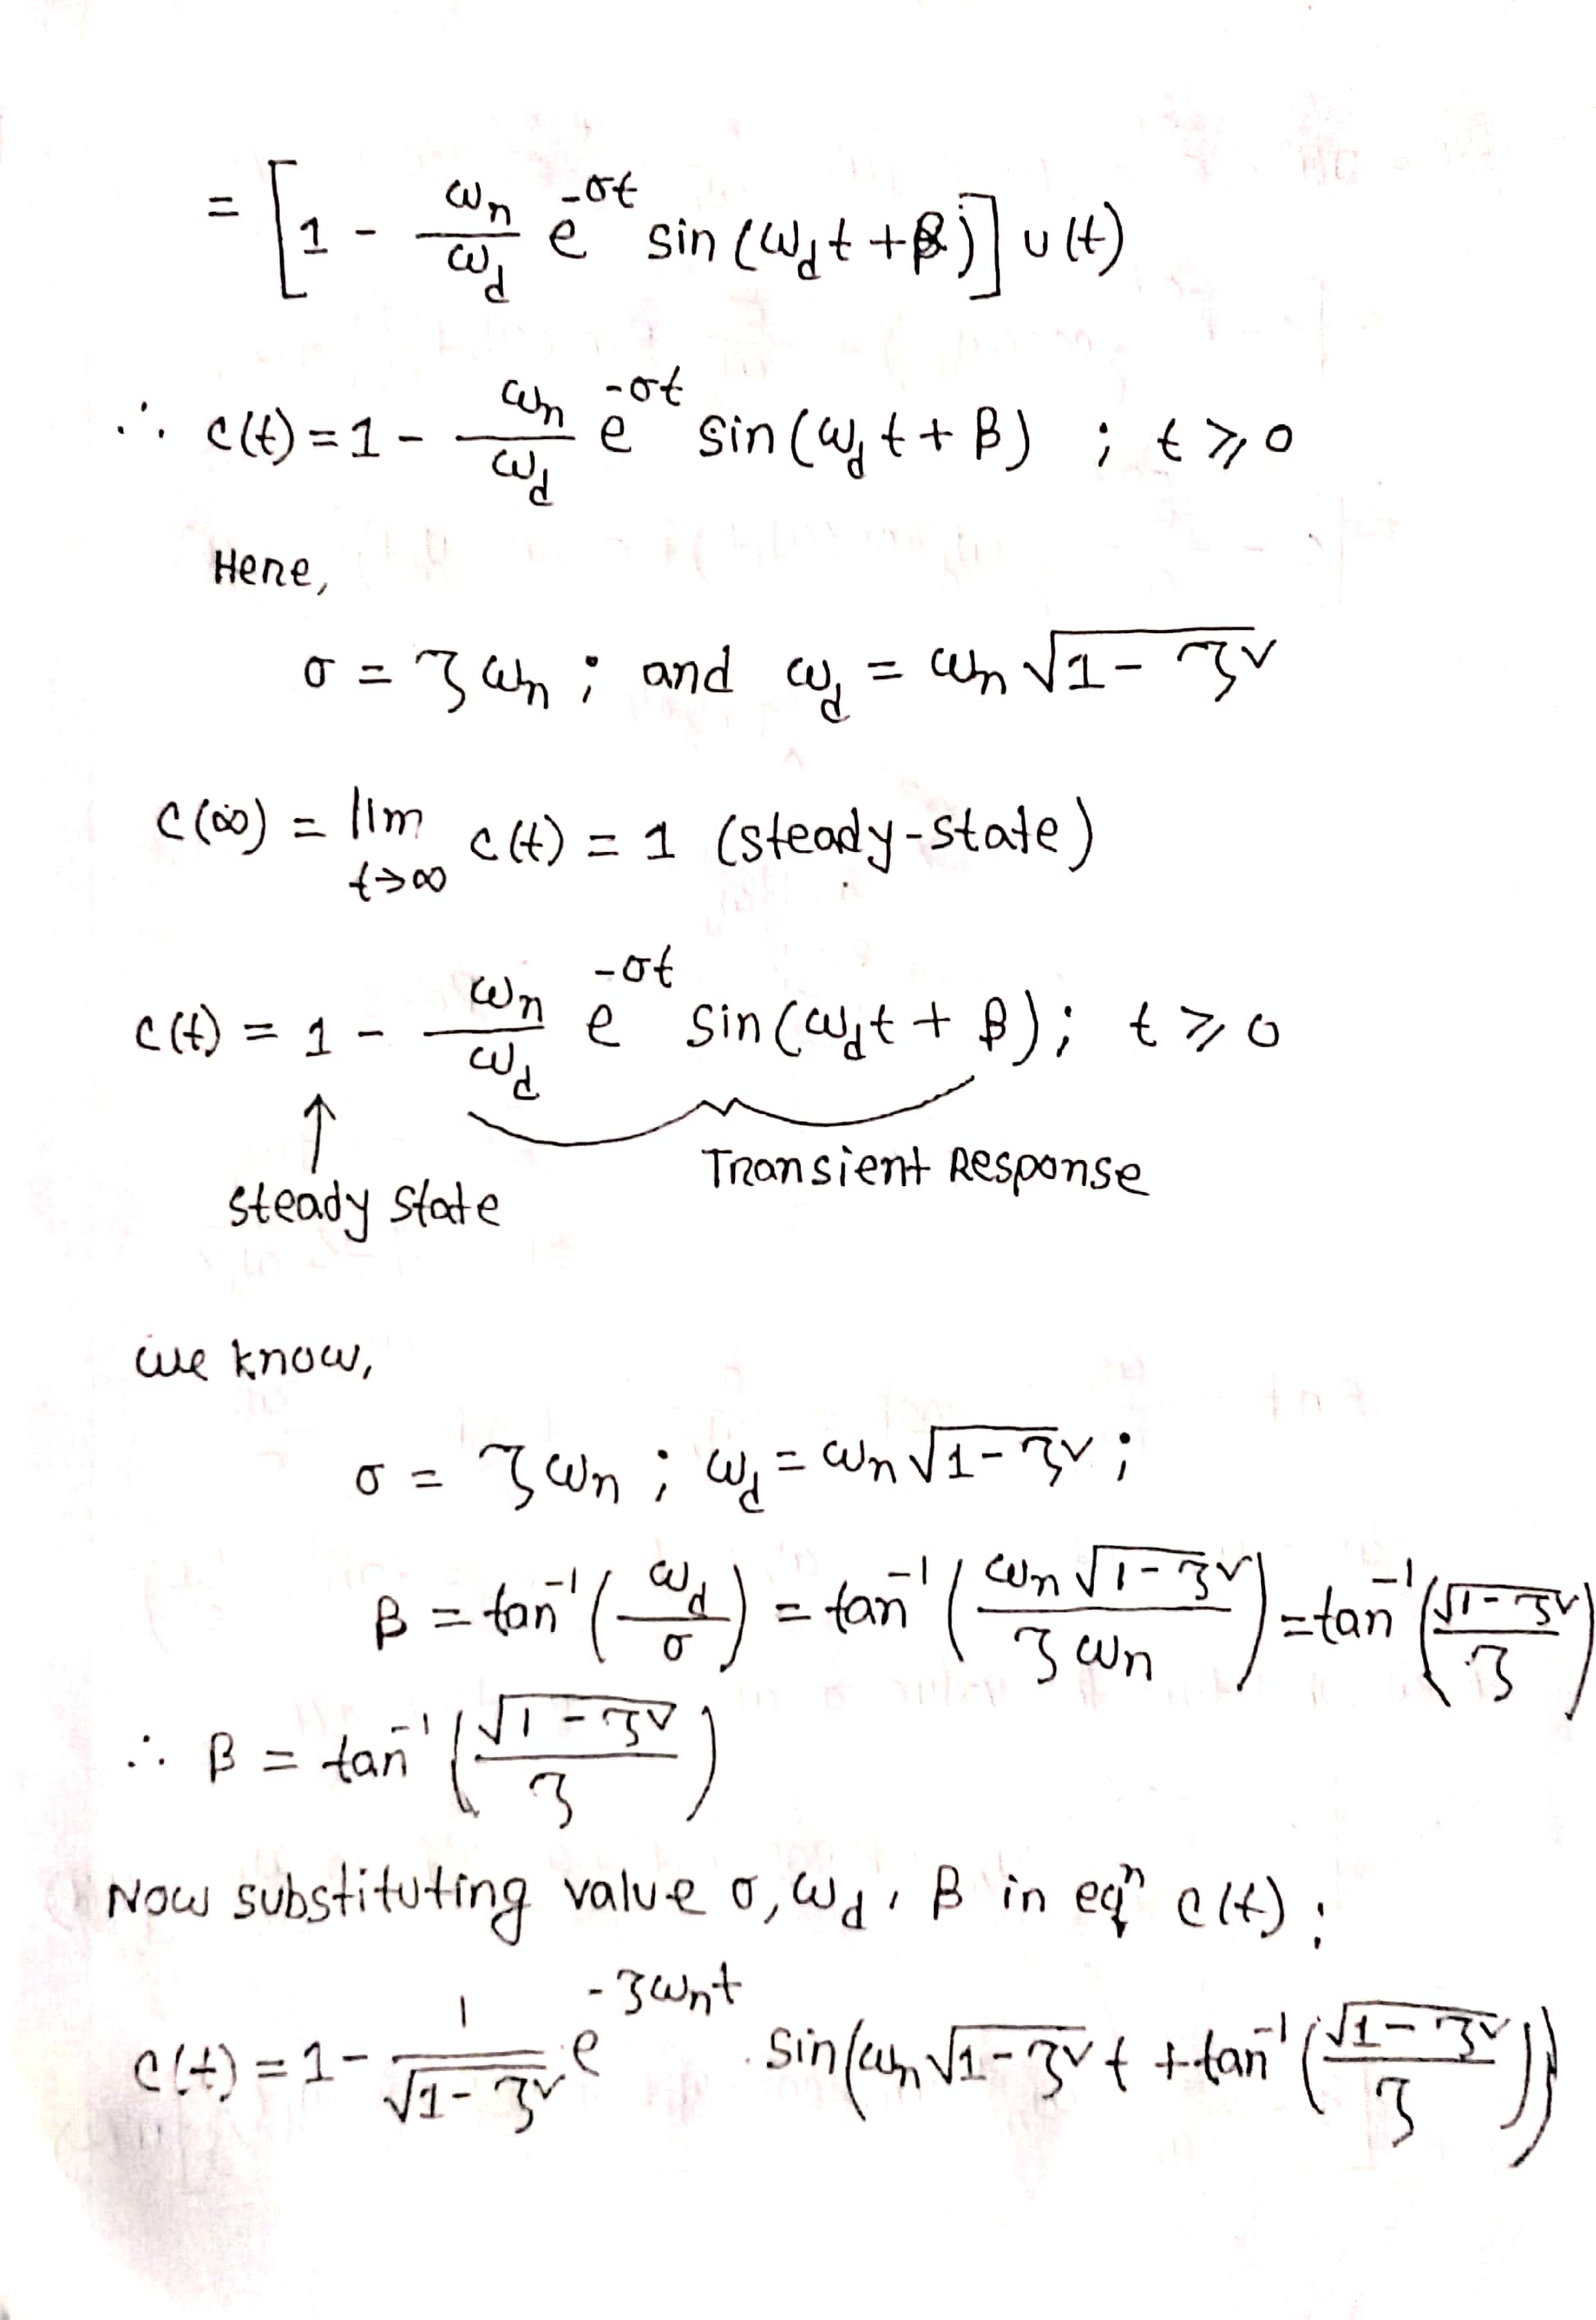 = [1 - ωn/ωd e^-σt sin(ωd t + β)] u(t)
∴ c(t) = 1 - ωn/ωd e^-σt sin(ωd t + β) ; t ⩾ 0
Here,
σ = ζωn ; and ωd = ωn √(1 - ζ²)
c(∞) = lim t→∞ c(t) = 1 (steady-state)
c(t) = 1 - ωn/ωd e^-σt sin(ωd t + β) ; t ⩾ 0
↑
Transient Response
steady state
we know,
σ = ζωn ; ωd = ωn √(1 - ζ²) ;
β = tan⁻¹(ωd/σ) = tan⁻¹(ωn √(1 - ζ²)/ζωn) = tan⁻¹(√(1 - ζ²)/ζ)
∴ β = tan⁻¹(√(1 - ζ²)/ζ)
Now substituting value σ, ωd, β in eqⁿ c(t) ;
c(t) = 1 - 1/√(1 - ζ²) e^-ζωnt sin(ωn √(1 - ζ²) t + tan⁻¹(√(1 - ζ²)/ζ))